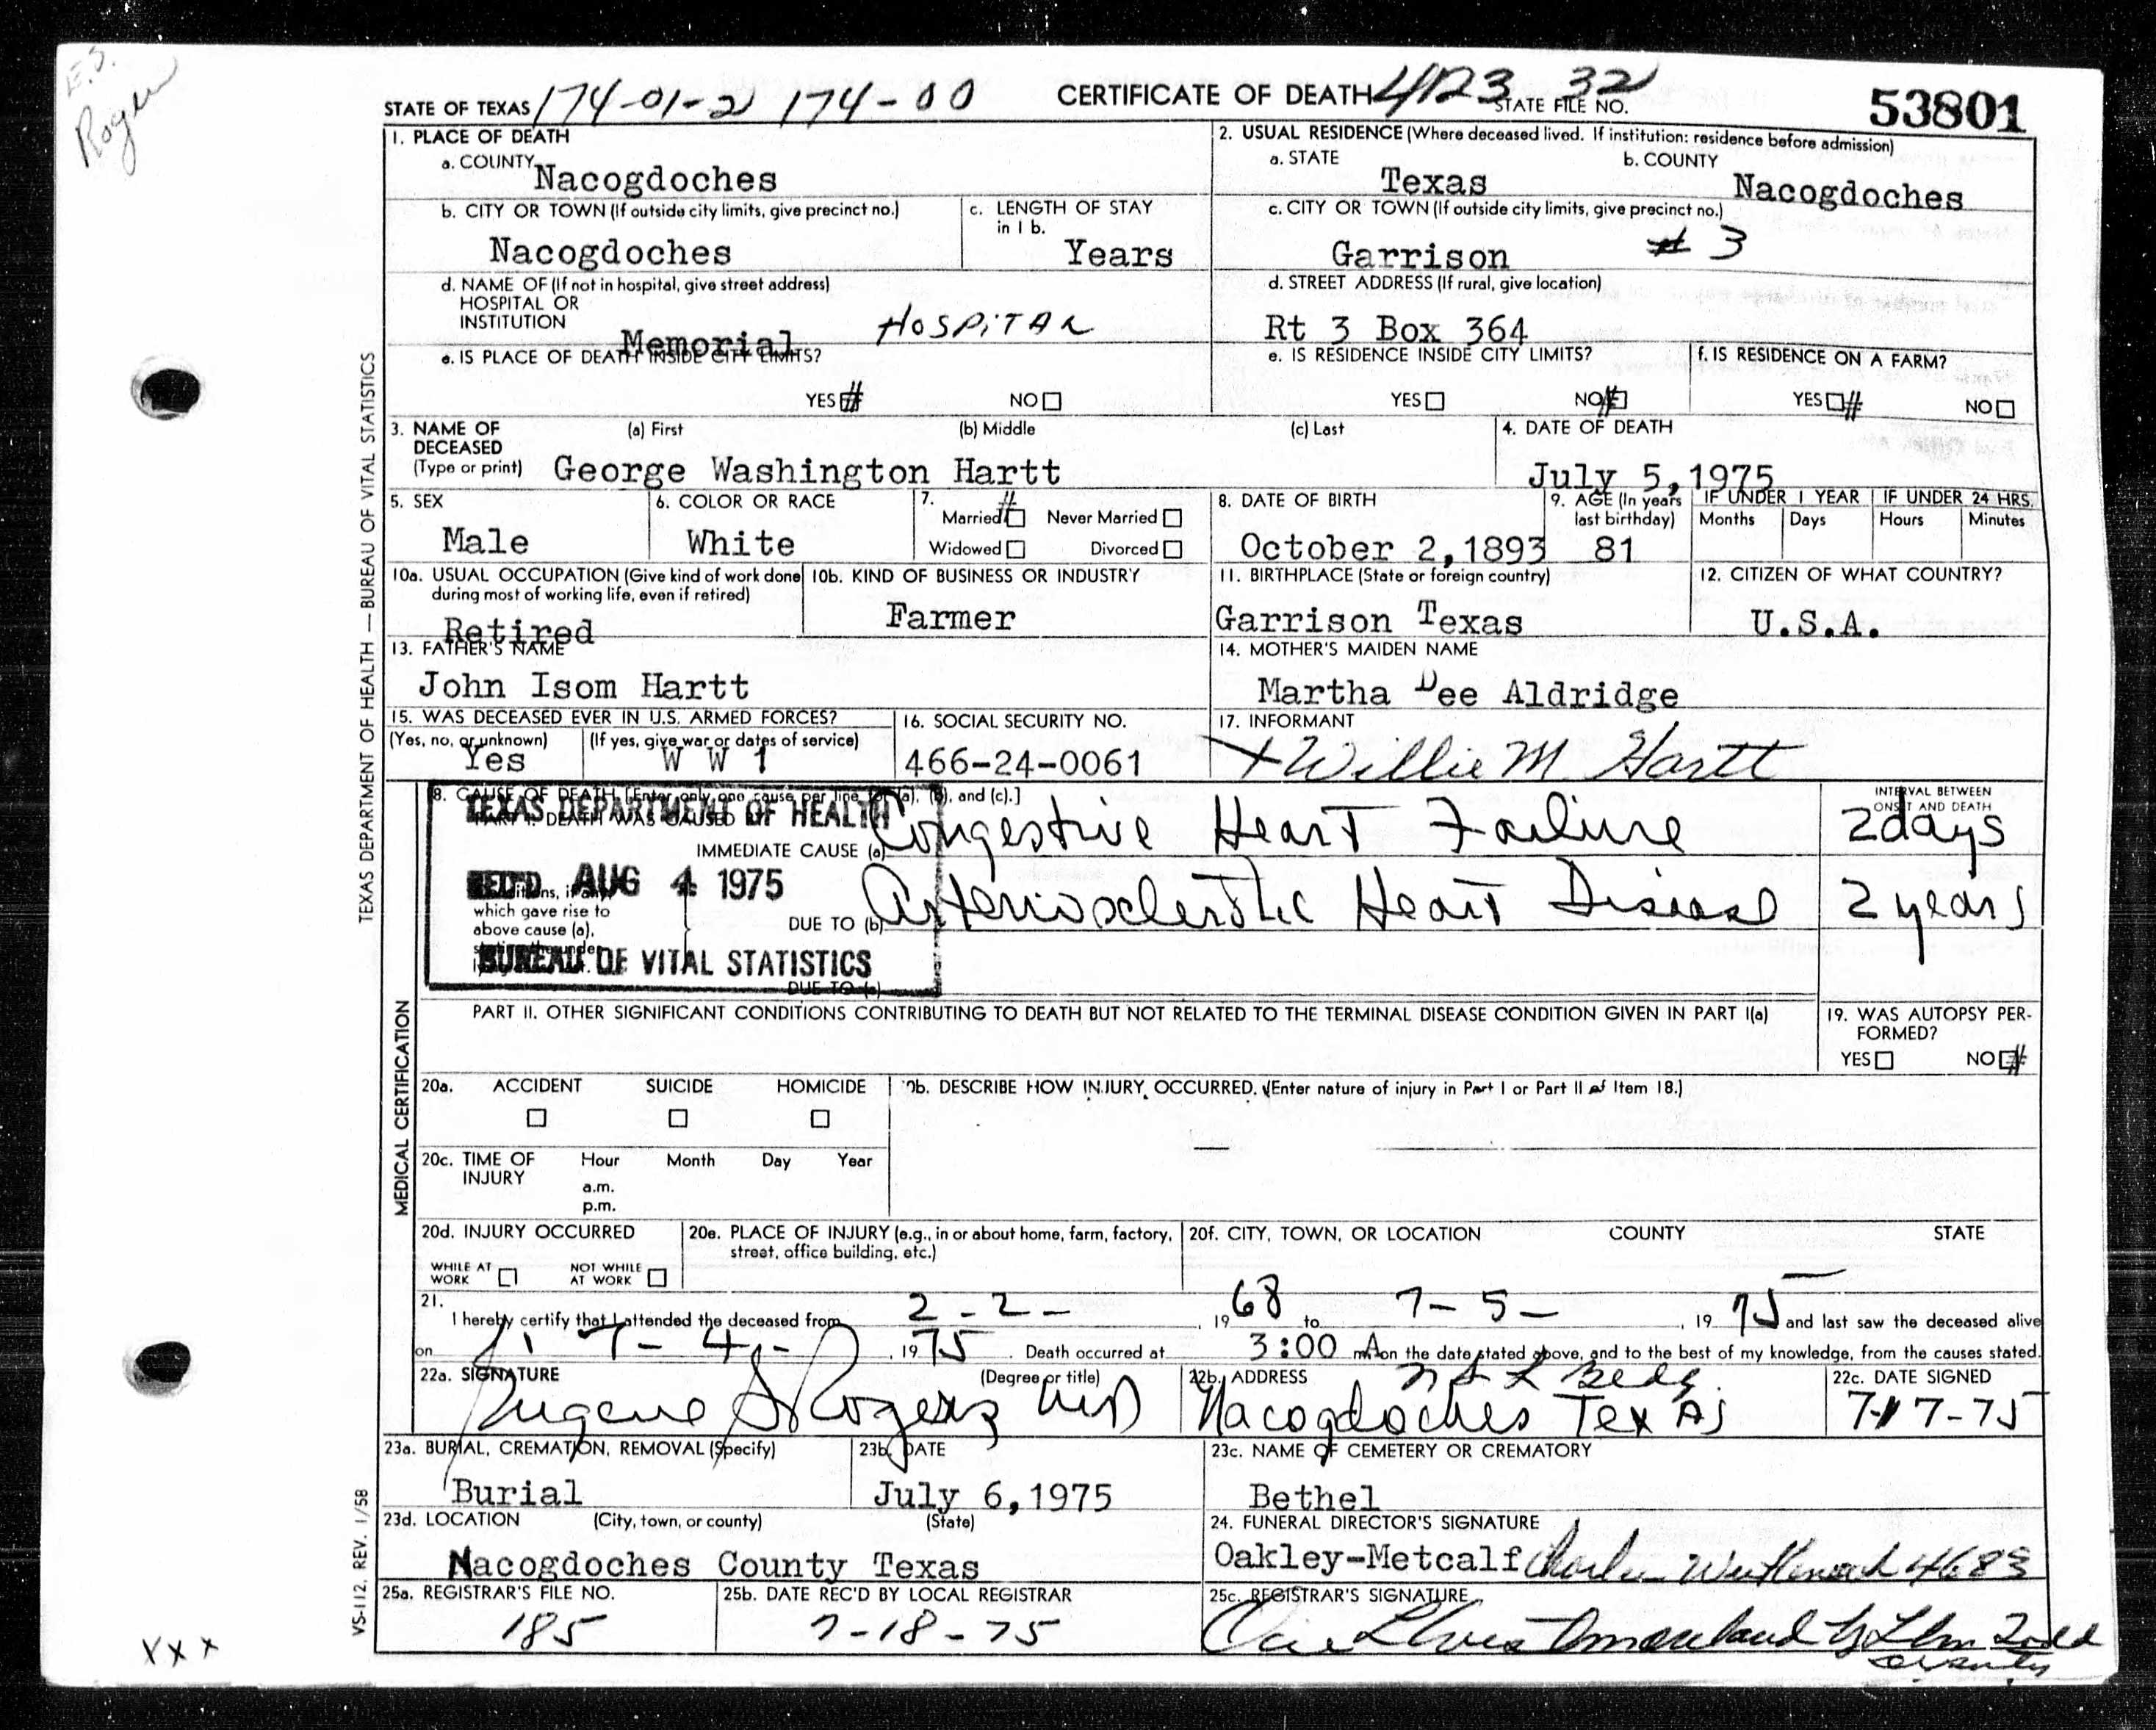 E.S.
Rogers
STATE OF TEXAS 174-01-2 174-00 CERTIFICATE OF DEATH 4123 32 STATE FILE NO. 53801
1. PLACE OF DEATH
a. COUNTY Nacogdoches
b. CITY OR TOWN (If outside city limits, give precinct no.) Nacogdoches
c. LENGTH OF STAY in 1 b. Years
d. NAME OF (If not in hospital, give street address)
HOSPITAL OR
INSTITUTION Memorial HOSPITAL
e. IS PLACE OF DEATH INSIDE CITY LIMITS?
YES # NO
2. USUAL RESIDENCE (Where deceased lived. If institution: residence before admission)
a. STATE Texas b. COUNTY Nacogdoches
c. CITY OR TOWN (If outside city limits, give precinct no.)
Garrison # 3
d. STREET ADDRESS (If rural, give location)
Rt 3 Box 364
e. IS RESIDENCE INSIDE CITY LIMITS?
YES NO #
f. IS RESIDENCE ON A FARM?
YES # NO
3. NAME OF DECEASED (Type or print)
(a) First (b) Middle (c) Last
George Washington Hartt
4. DATE OF DEATH
July 5,1975
5. SEX
Male
6. COLOR OR RACE
White
7. #
Married Never Married
Widowed Divorced
8. DATE OF BIRTH
October 2,1893
9. AGE (In years last birthday)
81
IF UNDER 1 YEAR IF UNDER 24 HRS.
Months Days Hours Minutes
10a. USUAL OCCUPATION (Give kind of work done
during most of working life, even if retired)
Retired
10b. KIND OF BUSINESS OR INDUSTRY
Farmer
11. BIRTHPLACE (State or foreign country)
Garrison Texas
12. CITIZEN OF WHAT COUNTRY?
U.S.A.
13. FATHER'S NAME
John Isom Hartt
14. MOTHER'S MAIDEN NAME
Martha Dee Aldridge
15. WAS DECEASED EVER IN U.S. ARMED FORCES?
(Yes, no, or unknown) (If yes, give war or dates of service)
Yes W W 1
16. SOCIAL SECURITY NO.
466-24-0061
17. INFORMANT
x Willie M. Hartt
18. CAUSE OF DEATH [Enter only one cause per line for (a), (b), and (c).]
TEXAS DEPARTMENT OF HEALTH
PART I. DEATH WAS CAUSED BY
IMMEDIATE CAUSE (a) Congestive Heart Failure
INTERVAL BETWEEN
ONSET AND DEATH
2 days
REC'D AUG 4 1975
Conditions, if any,
which gave rise to
above cause (a),
stating the under-
DUE TO (b) Arteriosclerotic Heart Disease 2 years
BUREAU OF VITAL STATISTICS
DUE TO (c)
PART II. OTHER SIGNIFICANT CONDITIONS CONTRIBUTING TO DEATH BUT NOT RELATED TO THE TERMINAL DISEASE CONDITION GIVEN IN PART I(a)
19. WAS AUTOPSY PER-
FORMED?
YES NO #
20a. ACCIDENT SUICIDE HOMICIDE
20b. DESCRIBE HOW INJURY OCCURRED. (Enter nature of injury in Part I or Part II of Item 18.)
20c. TIME OF INJURY
Hour Month Day Year
a.m.
p.m.
20d. INJURY OCCURRED
WHILE AT WORK NOT WHILE AT WORK
20e. PLACE OF INJURY (e.g., in or about home, farm, factory,
street, office building, etc.)
20f. CITY, TOWN, OR LOCATION COUNTY STATE
21.
I hereby certify that I attended the deceased from 2-2- , 19 68 to 7-5- , 19 75 and last saw the deceased alive
on 7-4- , 19 75 . Death occurred at 3:00 A m. on the date stated above, and to the best of my knowledge, from the causes stated.
22a. SIGNATURE (Degree or title)
Eugene S Rogers MD
22b. ADDRESS
Bldg.
Nacogdoches Texas
22c. DATE SIGNED
7-17-75
23a. BURIAL, CREMATION, REMOVAL (Specify)
Burial
23b. DATE
July 6,1975
23c. NAME OF CEMETERY OR CREMATORY
Bethel
23d. LOCATION (City, town, or county) (State)
Nacogdoches County Texas
24. FUNERAL DIRECTOR'S SIGNATURE
Oakley-Metcalf 4683
25a. REGISTRAR'S FILE NO.
185
25b. DATE REC'D BY LOCAL REGISTRAR
7-18-75
25c. REGISTRAR'S SIGNATURE
TEXAS DEPARTMENT OF HEALTH — BUREAU OF VITAL STATISTICS
MEDICAL CERTIFICATION
VS-112, REV. 1/58
x x x